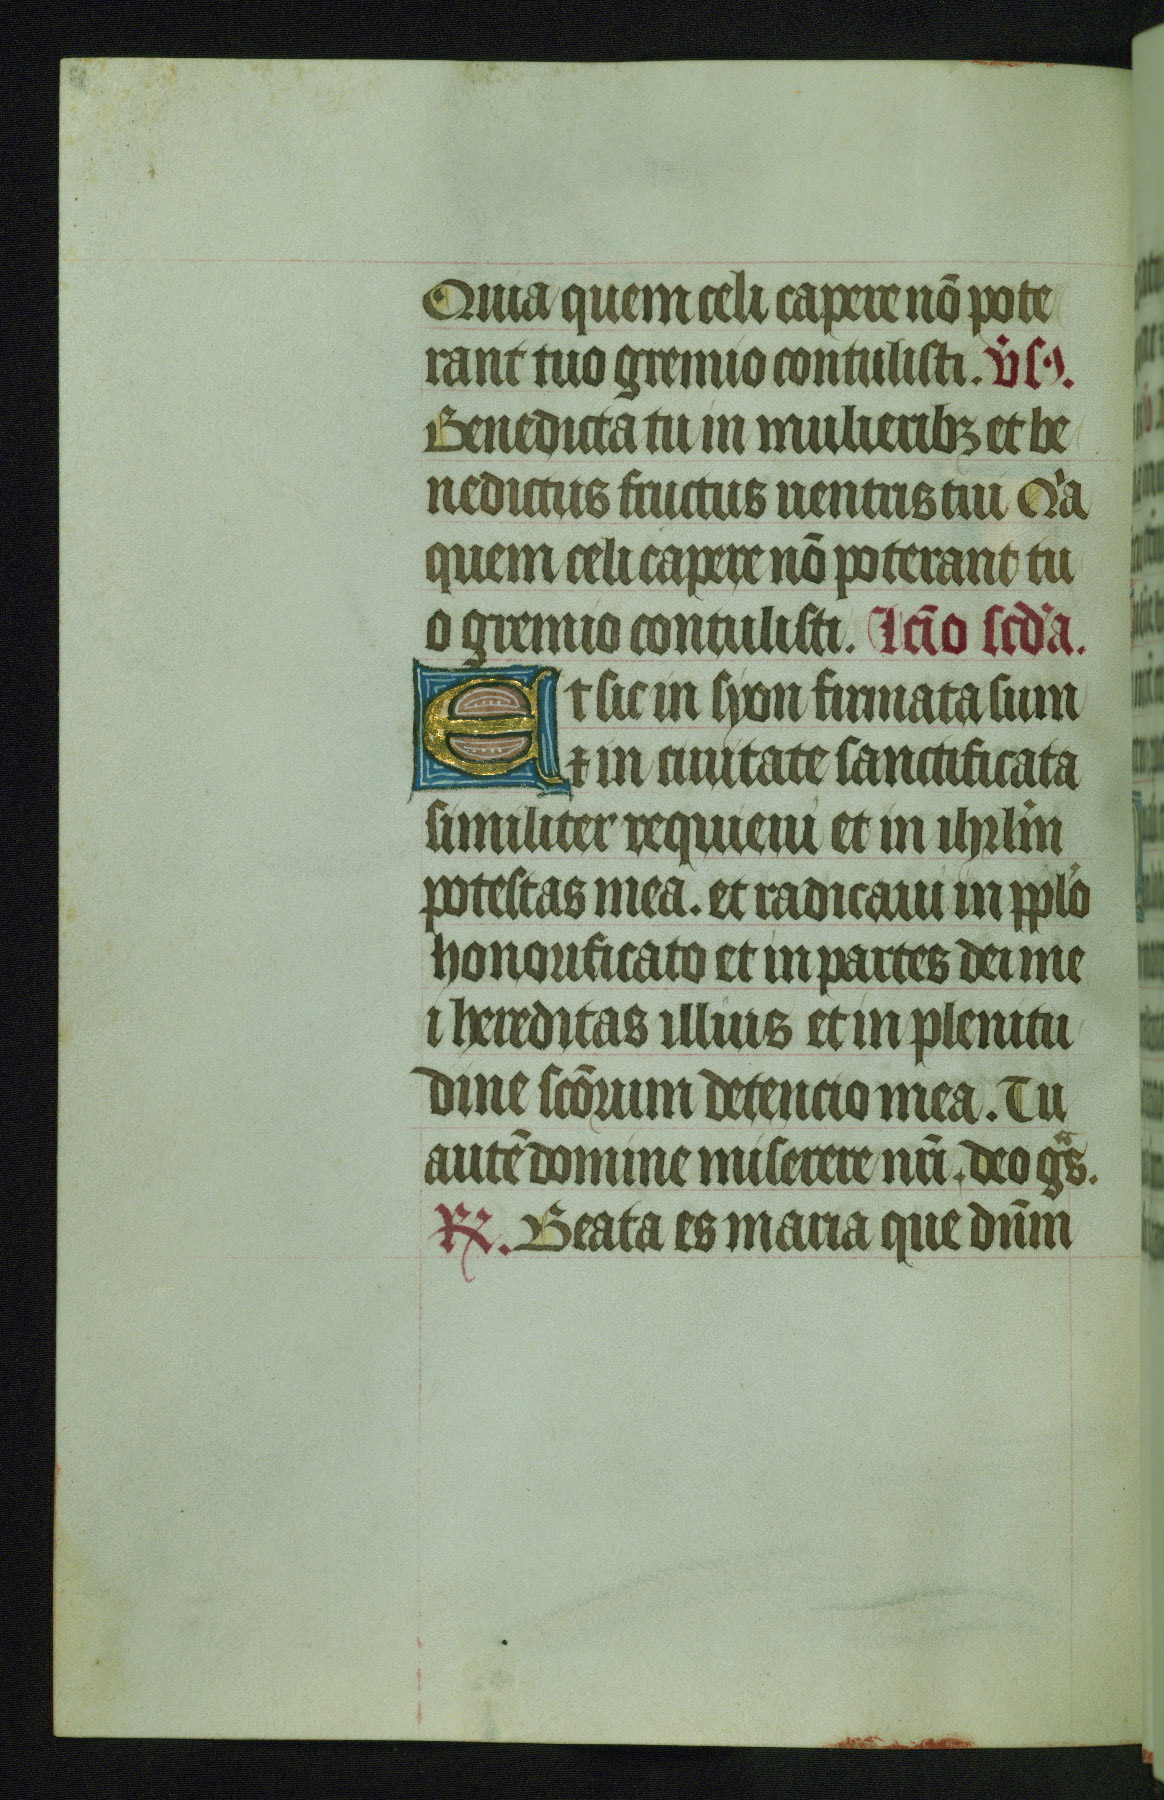 Quia quem celi capere nō pote
rant tuo gremio contulisti. v̄s9.
Benedicta tu in mulieribꝫ et be
nedictus fructus uentris tui Qͥa
quem celi capere nō poterant tu
o gremio contulisti. lc̄io scd̕a.
Et sic in syon firmata sum
⁊ in ciuitate sanctificata
similiter requieui et in ihrl̕m
potestas mea. et radicaui in ppl̕o
honorificato et in partes dei me
i hereditas illius et in plenitu
dine scōrum detencio mea. Tu
autē domine miserere nr̄i. deo gͣs.
RX. Beata es maria que dn̄m